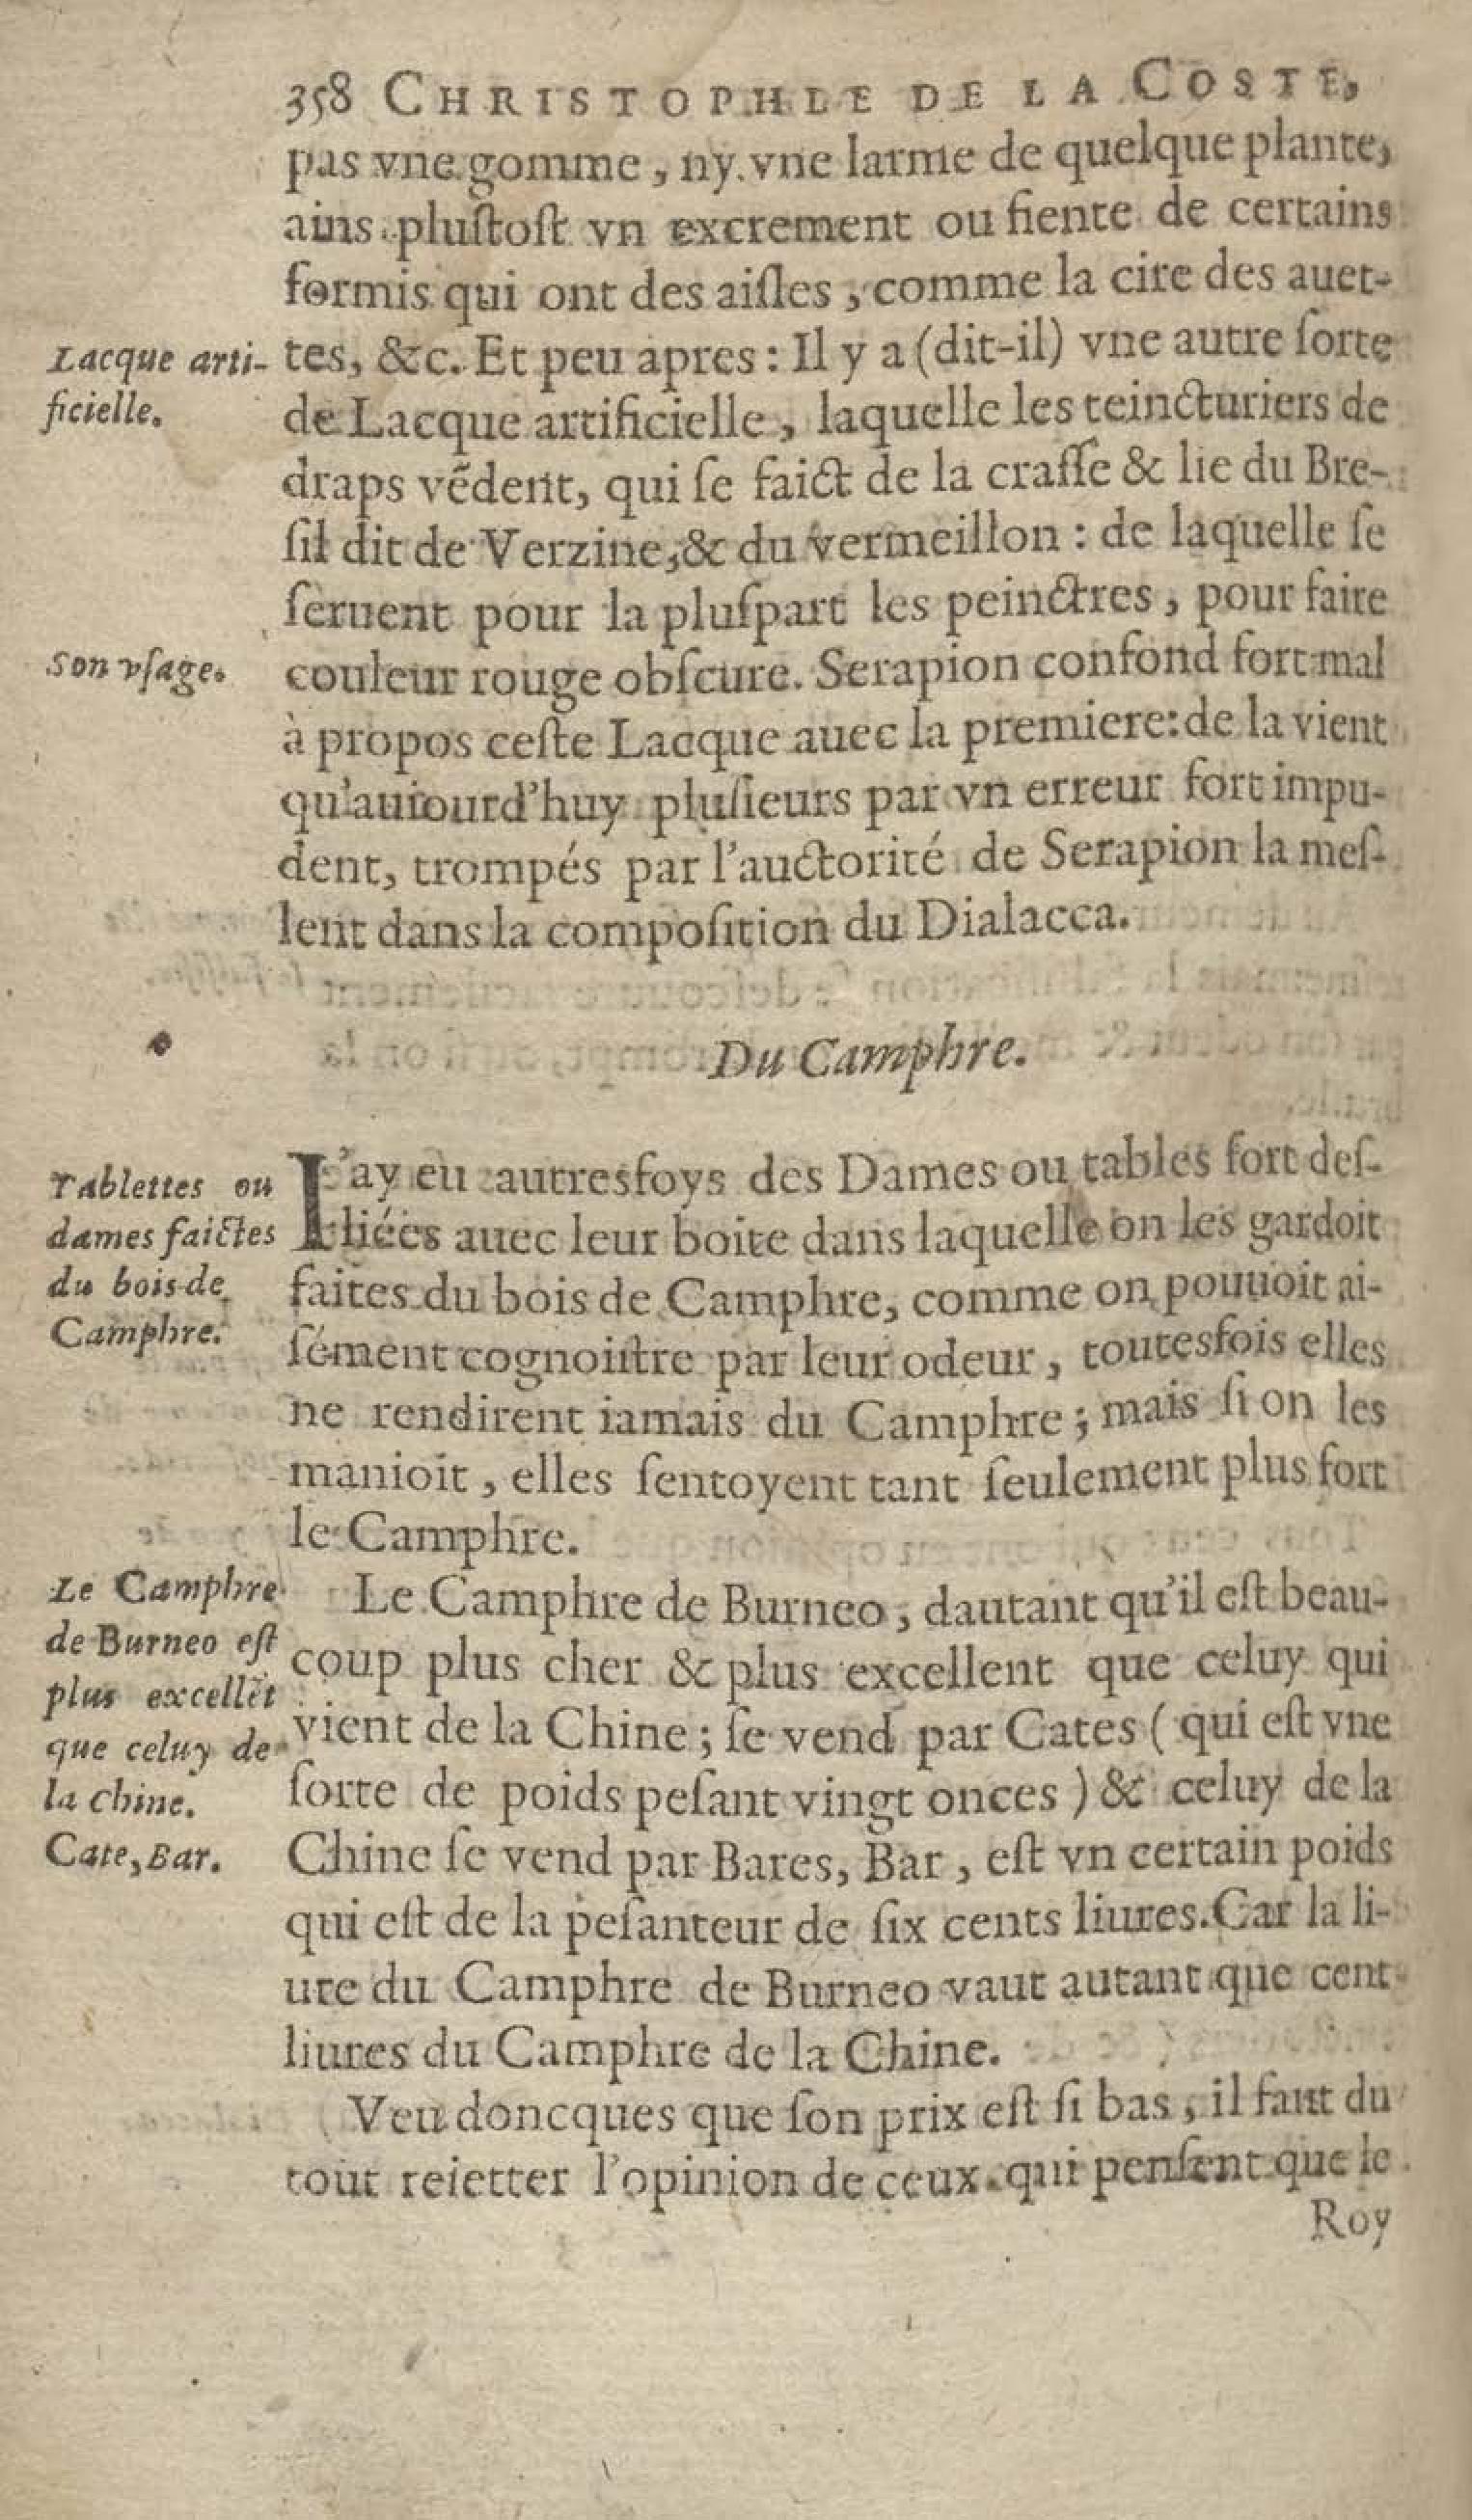 358 CHRISTOPHLE DE LA COSTE,
pas vne gomme, ny vne larme de quelque plante,
ains pluſtoſt vn excrement ou fiente de certains
formis qui ont des aiſles, comme la cire des auet-
Lacque arti-
ficielle.
tes, &c. Et peu apres : Il y a (dit-il) vne autre ſorte
de Lacque artificielle, laquelle les teincturiers de
draps vẽdent, qui ſe faict de la craſſe & lie du Bre-
ſil dit de Verzine, & du vermeillon : de laquelle ſe
ſeruent pour la pluſpart les peinctres, pour faire
Son vſage.
couleur rouge obſcure. Serapion confond fort mal
à propos ceſte Lacque auec la premiere: de la vient
qu'auiourd'huy pluſieurs par vn erreur fort impu-
dent, trompés par l'auctorité de Serapion la meſ-
lent dans la compoſition du Dialacca.
Du Camphre.
Tablettes ou
dames faictes
du bois de
Camphre.
I'ay eu autresfoys des Dames ou tables fort deſ-
liées auec leur boite dans laquelle on les gardoit
faites du bois de Camphre, comme on pouuoit ai-
ſément cognoiſtre par leur odeur, toutesfois elles
ne rendirent iamais du Camphre ; mais ſi on les
manioit, elles ſentoyent tant ſeulement plus fort
le Camphre.
Le Camphre
de Burneo eſt
plus excellẽt
que celuy de
la Chine.
Cate, Bar.
Le Camphre de Burneo, dautant qu'il eſt beau-
coup plus cher & plus excellent que celuy qui
vient de la Chine ; ſe vend par Cates ( qui eſt vne
ſorte de poids peſant vingt onces ) & celuy de la
Chine ſe vend par Bares, Bar, eſt vn certain poids
qui eſt de la peſanteur de ſix cents liures. Car la li-
ure du Camphre de Burneo vaut autant que cent
liures du Camphre de la Chine.
Veu doncques que ſon prix eſt ſi bas, il faut du
tout reietter l'opinion de ceux qui penſent que le
Roy